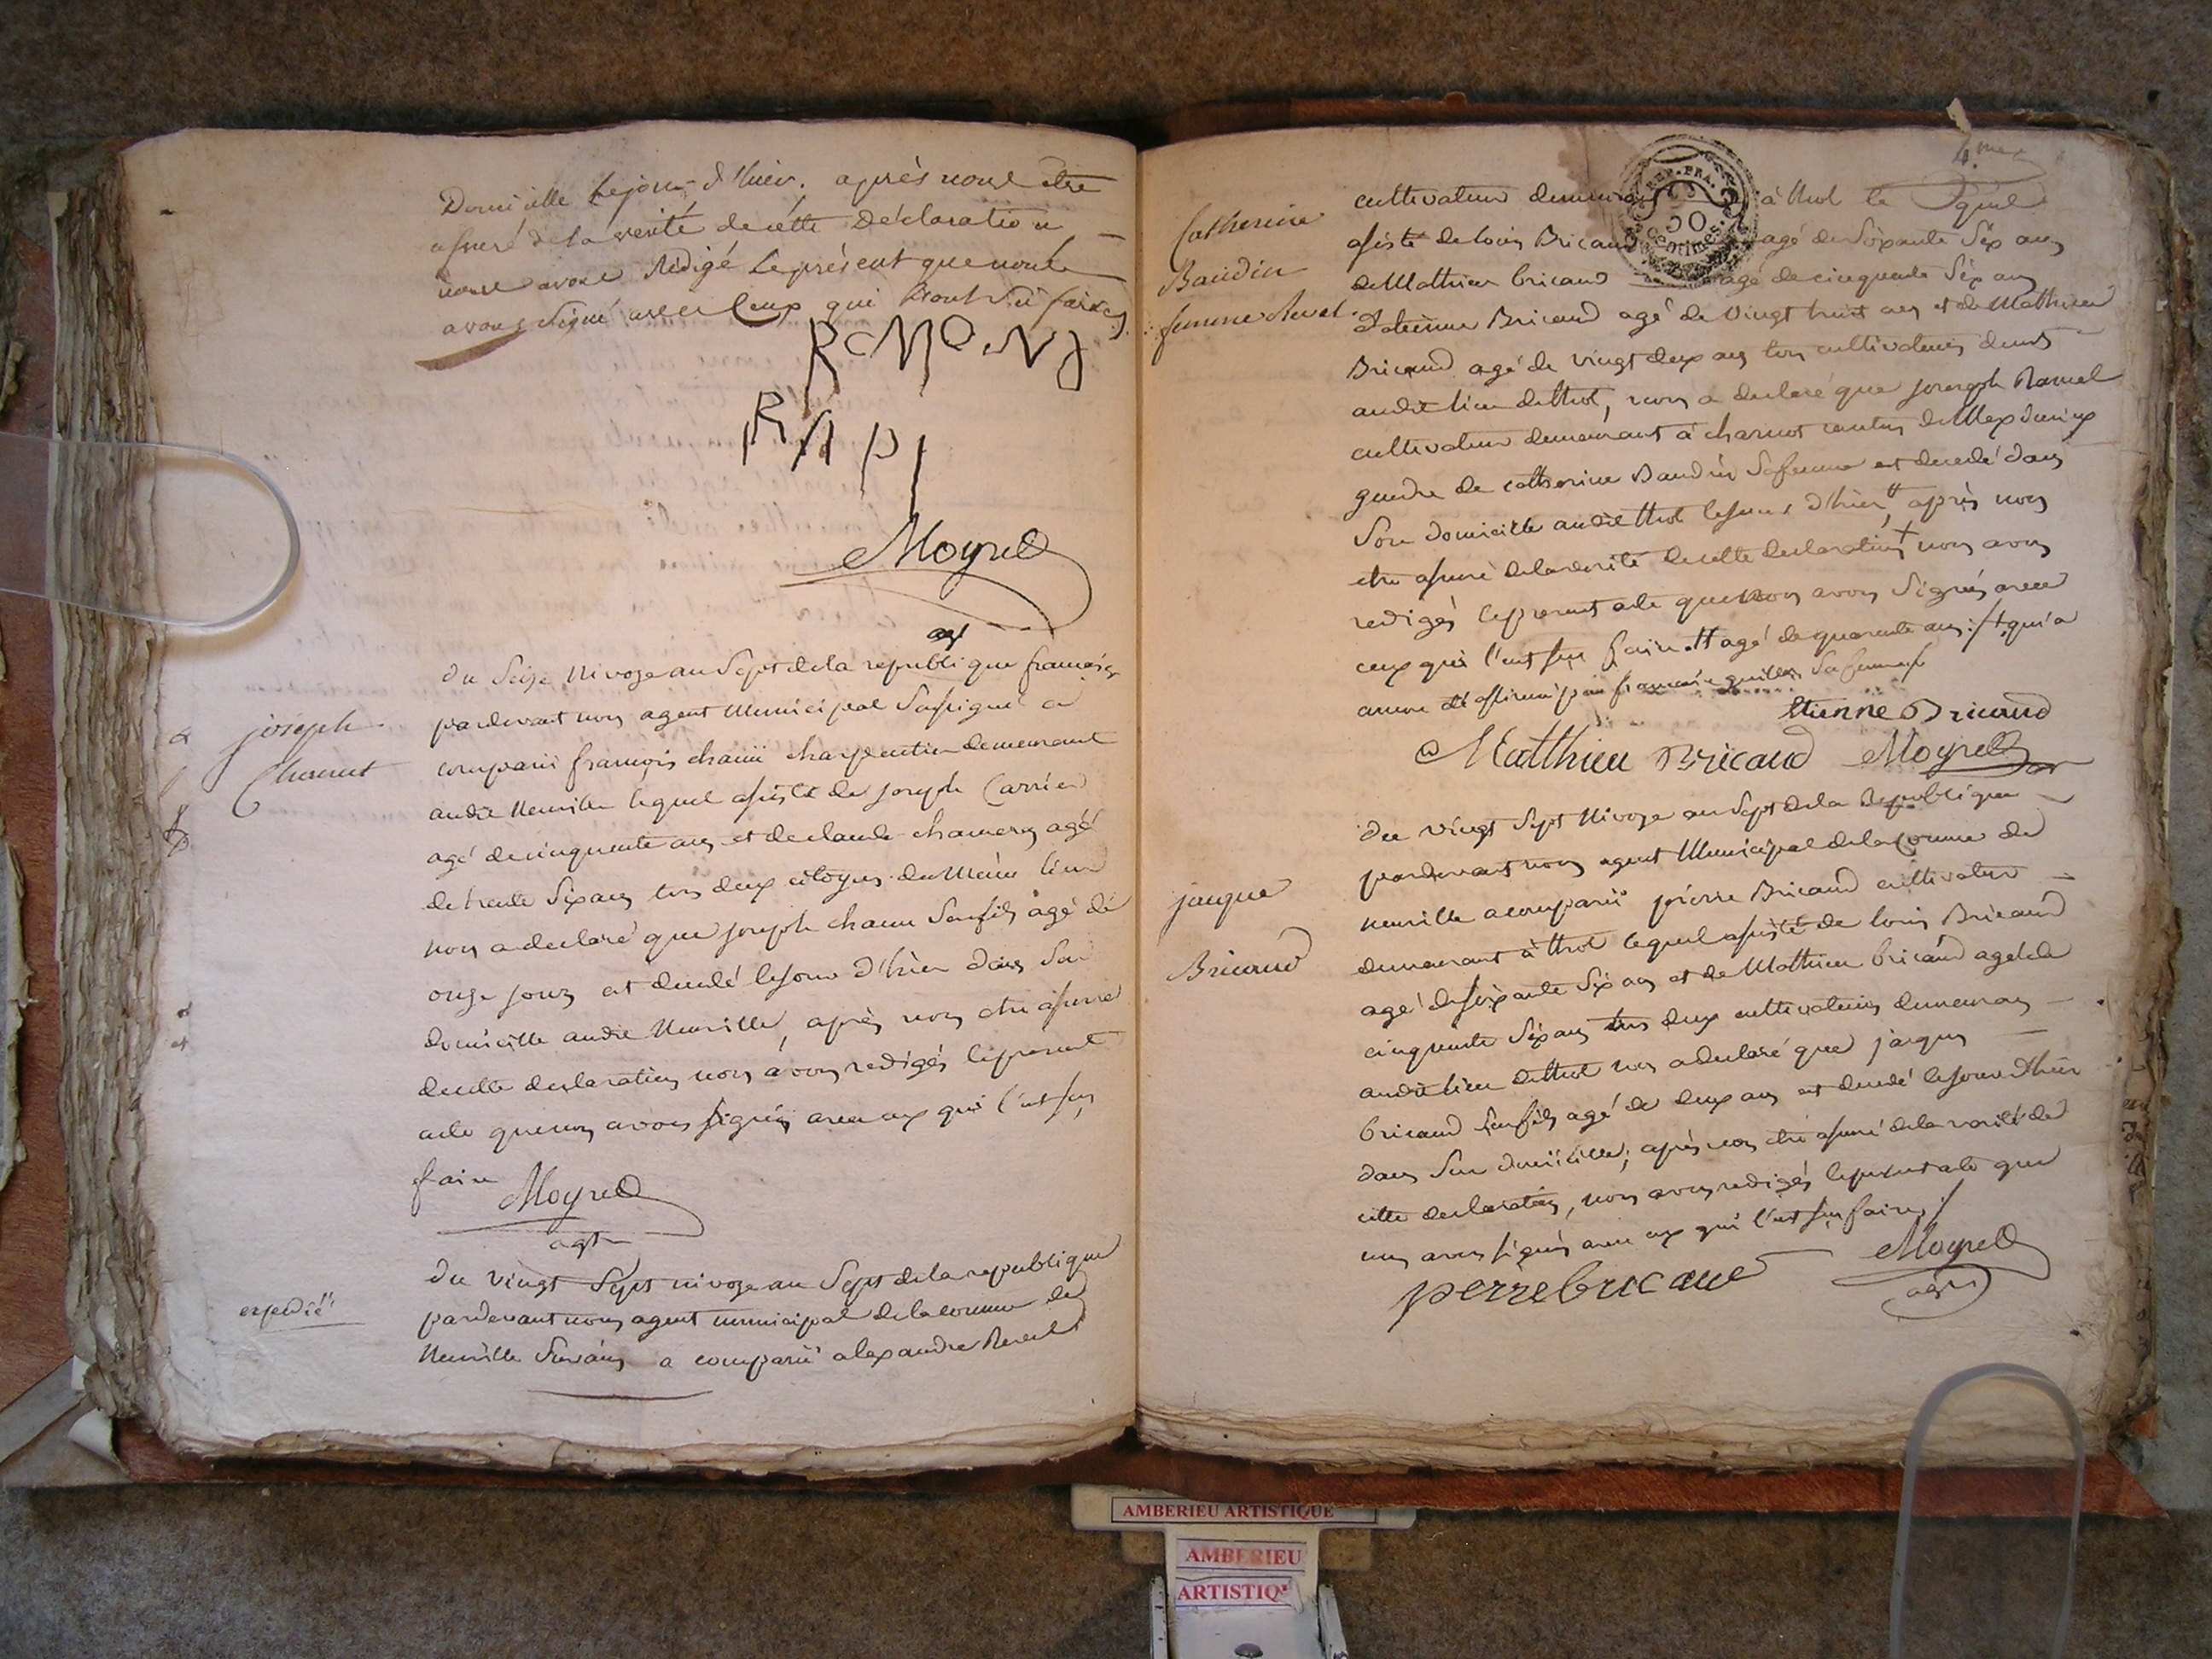 Domicille Lejour d'hier. après nous être
assuré de la verité de cette Déclaration
nous avons Rédigé Le présent que nous
avons Signé avec Ceux qui l'ont Sù faire
Moyret
agt
joseph
Chanut
du Seize Nivoze an Sept de la republique francaise
pardevant nous agent Municipal Sousigné a
comparü françois charpentier demeurant
audit Neuville lequel assisté de joseph Carrier
agé de cinquente ans et de claude agé
de trente Six ans tous deux citoyens du Même lieu
nous a declaré que joseph Son fils agé de
onze jours est decedé le jour d'hier dans Son
domicille audit Neuville, après nous etre assuré
de cette declaration nous avons redigés le present
acte que nous avons signés avec ceux qui l'ont sus
faire Moyret
agt
expedié
du vingt Sept nivoze an Sept de la republique
pardevant nous agent municipal de la comune de
Neuville Surains a comparü alexandre Revel
4me
Catherine
Baudin
femme Revel
cultivateur demeurant à thol le quel
REP. FRA.
50
centimes
assisté de louis Bricaud agé de Soixante Six ans
de Mathieu bricaud agé de cinquente Six ans
d'etienne Bricaud agé de vingt huit ans et de Mathieu
Bricaud agé de vingt deux ans tous cultivateurs demts
audit lieu de thol, nous a declaré que joseph
cultivateur demeurant à charnot canton de
de catherine Baudin Sa femme est decedé dans
Son domicille audit thol le jour d'hier tt après nous
etre assuré de la verité de cette declaration + nous avons
redigés le present acte que nous avons Signés avec
ceux qui l'ont sus faire. tt agé de quarente ans :/ + qui a
encore été Sa femme /
Etienne Bricaud
Matthieu Bricaud Moyret
jaque
Bricaud
du vingt Sept Nivoze an Sept de la Republique
pardevant nous agent Municipal de la Comune de
neuville a comparü pierre Bricaud cultivateur
demeurant à thol lequel assisté de louis Bricaud
agé de soixante Six ans et de Mathieu bricaud agé de
cinquente Six ans tous deux cultivateurs demeurans
audit lieu de thol nous a declaré que jaques
bricaud son fils agé de deux ans est decedé le jour d'hier
dans Son domicille; après nous etre assuré de la verité de
cette declaration, nous avons redigés le present acte que
nous avons signés avec ceux qui l'ont sus faire /
Moyret
agt
perrebricaud
AMBERIEU ARTISTIQUE
AMBERIEU
ARTISTIQ